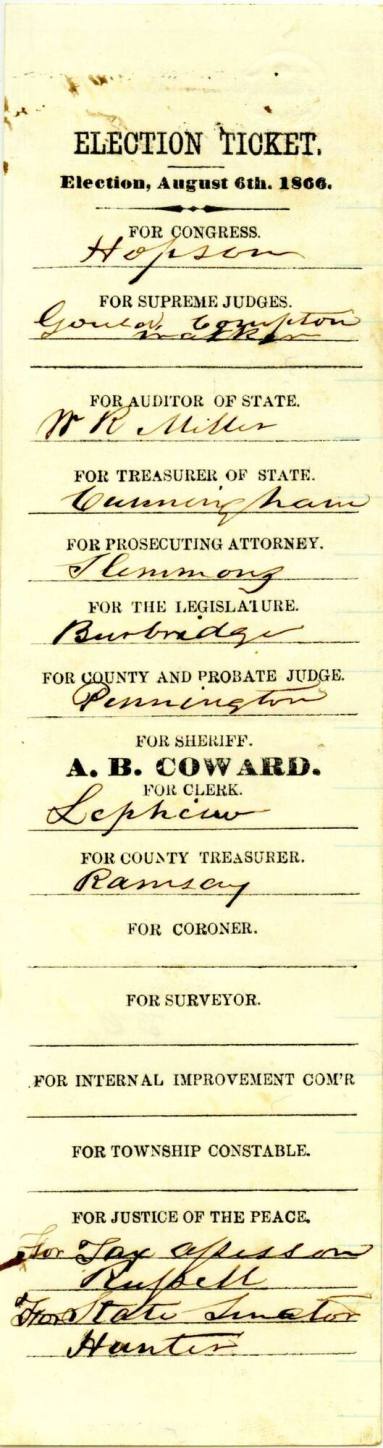 ELECTION TICKET.
Election, August 6th. 1866.
FOR CONGRESS.
Hopson
FOR SUPREME JUDGES.
Gould, Compton
Walker
FOR AUDITOR OF STATE.
W R Miller
FOR TREASURER OF STATE.
Cunningham
FOR PROSECUTING ATTORNEY.
Slemmons
FOR THE LEGISLATURE.
Burbridge
FOR COUNTY AND PROBATE JUDGE.
Pennington
FOR SHERIFF.
A. B. COWARD.
FOR CLERK.
FOR COUNTY TREASURER.
Ramsay
FOR CORONER.
FOR SURVEYOR.
FOR INTERNAL IMPROVEMENT COM'R
FOR TOWNSHIP CONSTABLE.
FOR JUSTICE OF THE PEACE.
For Tax Assessor
Russell
For State Senator
Hunter